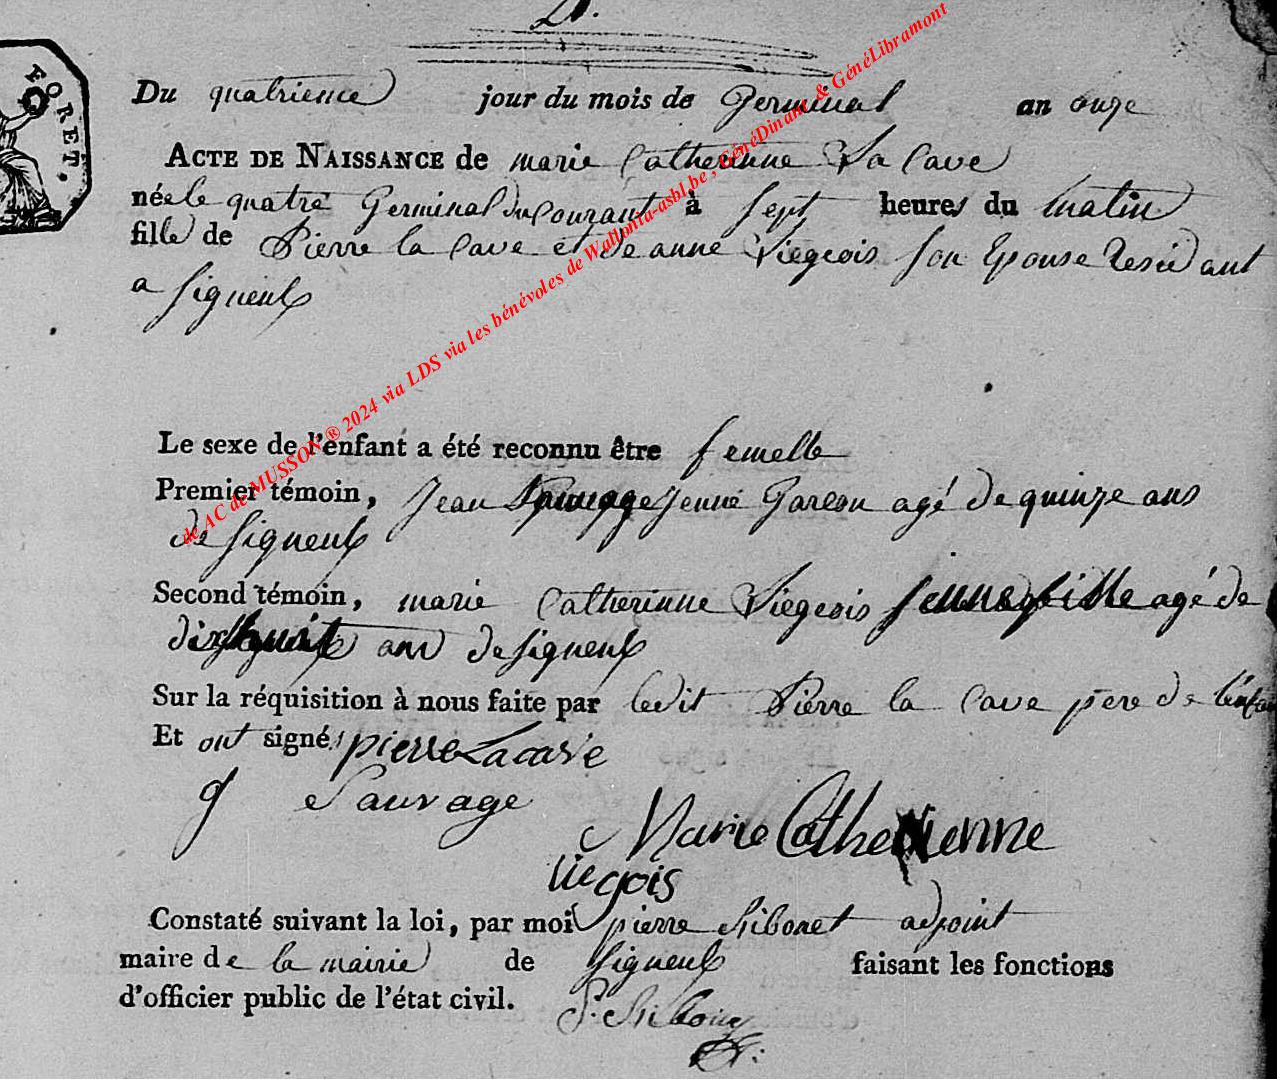 21.
FORET.
Du quatrieme jour du mois de Germinal an onze
ACTE DE NAISSANCE de marie Catherinne La Cave
née le quatre Germinal du Courant à Sept heures du matin
fille de Pierre la Cave et de anne Viegeois Son Epouse Residant
a Signeulx
Le sexe de l'enfant a été reconnu être femelle
Premier témoin, Jean Sauvage Jenne Garcon agé de quinze ans
de Signeulx
Second témoin, marie Catherinne Viegeois Jenne fille agé de
dix huit ans de Signeulx
Sur la réquisition à nous faite par ledit Pierre la Cave pere de l'enfan
Et ont signé, pierre Lacave
J Sauvage
Marie Catherienne
viegois
Constaté suivant la loi, par moi pierre adjoint
maire de la mairie de Signeulx faisant les fonctions
d'officier public de l'état civil.
P.
de AC de MUSSON ® 2024 via LDS via les bénévoles de Wallonia-asbl.be, GénéDinant & GénéLibramont